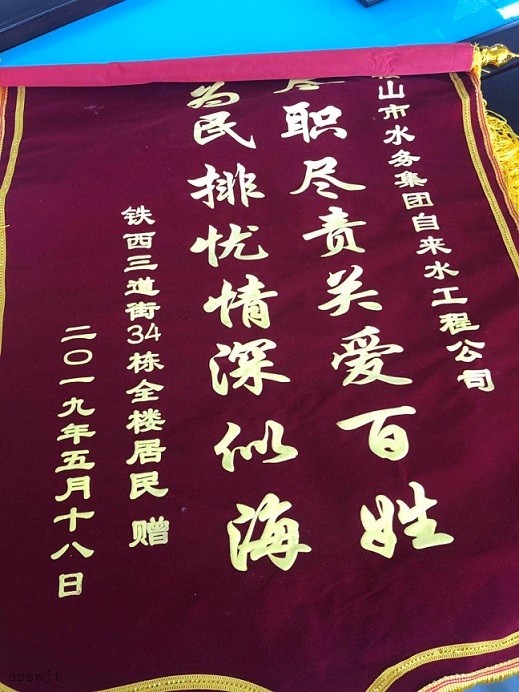 山市水务集团自来水工程公司
尽职尽责关爱百姓
为民排忧情深似海
铁西三道街34栋全楼居民 赠
二〇一九年五月十八日
asswjt